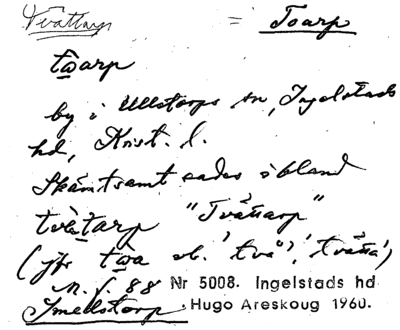 Tvättarp = Toarp
toarp
by i Ullstorps sn, Ingelstads
hd, Krist. l.
Skämtsamt sades ibland
tvätarp "Tvättarp"
(jfr toa vb. 'två', 'tvätta')
n. f. 88 Nr 5008. Ingelstads hd
Smedstorp. Hugo Areskoug 1960.